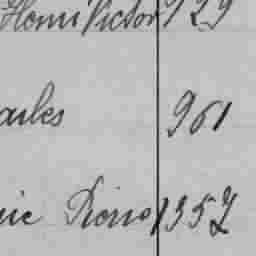 Henri Victor 129
arles 961
rie Pierre 1352